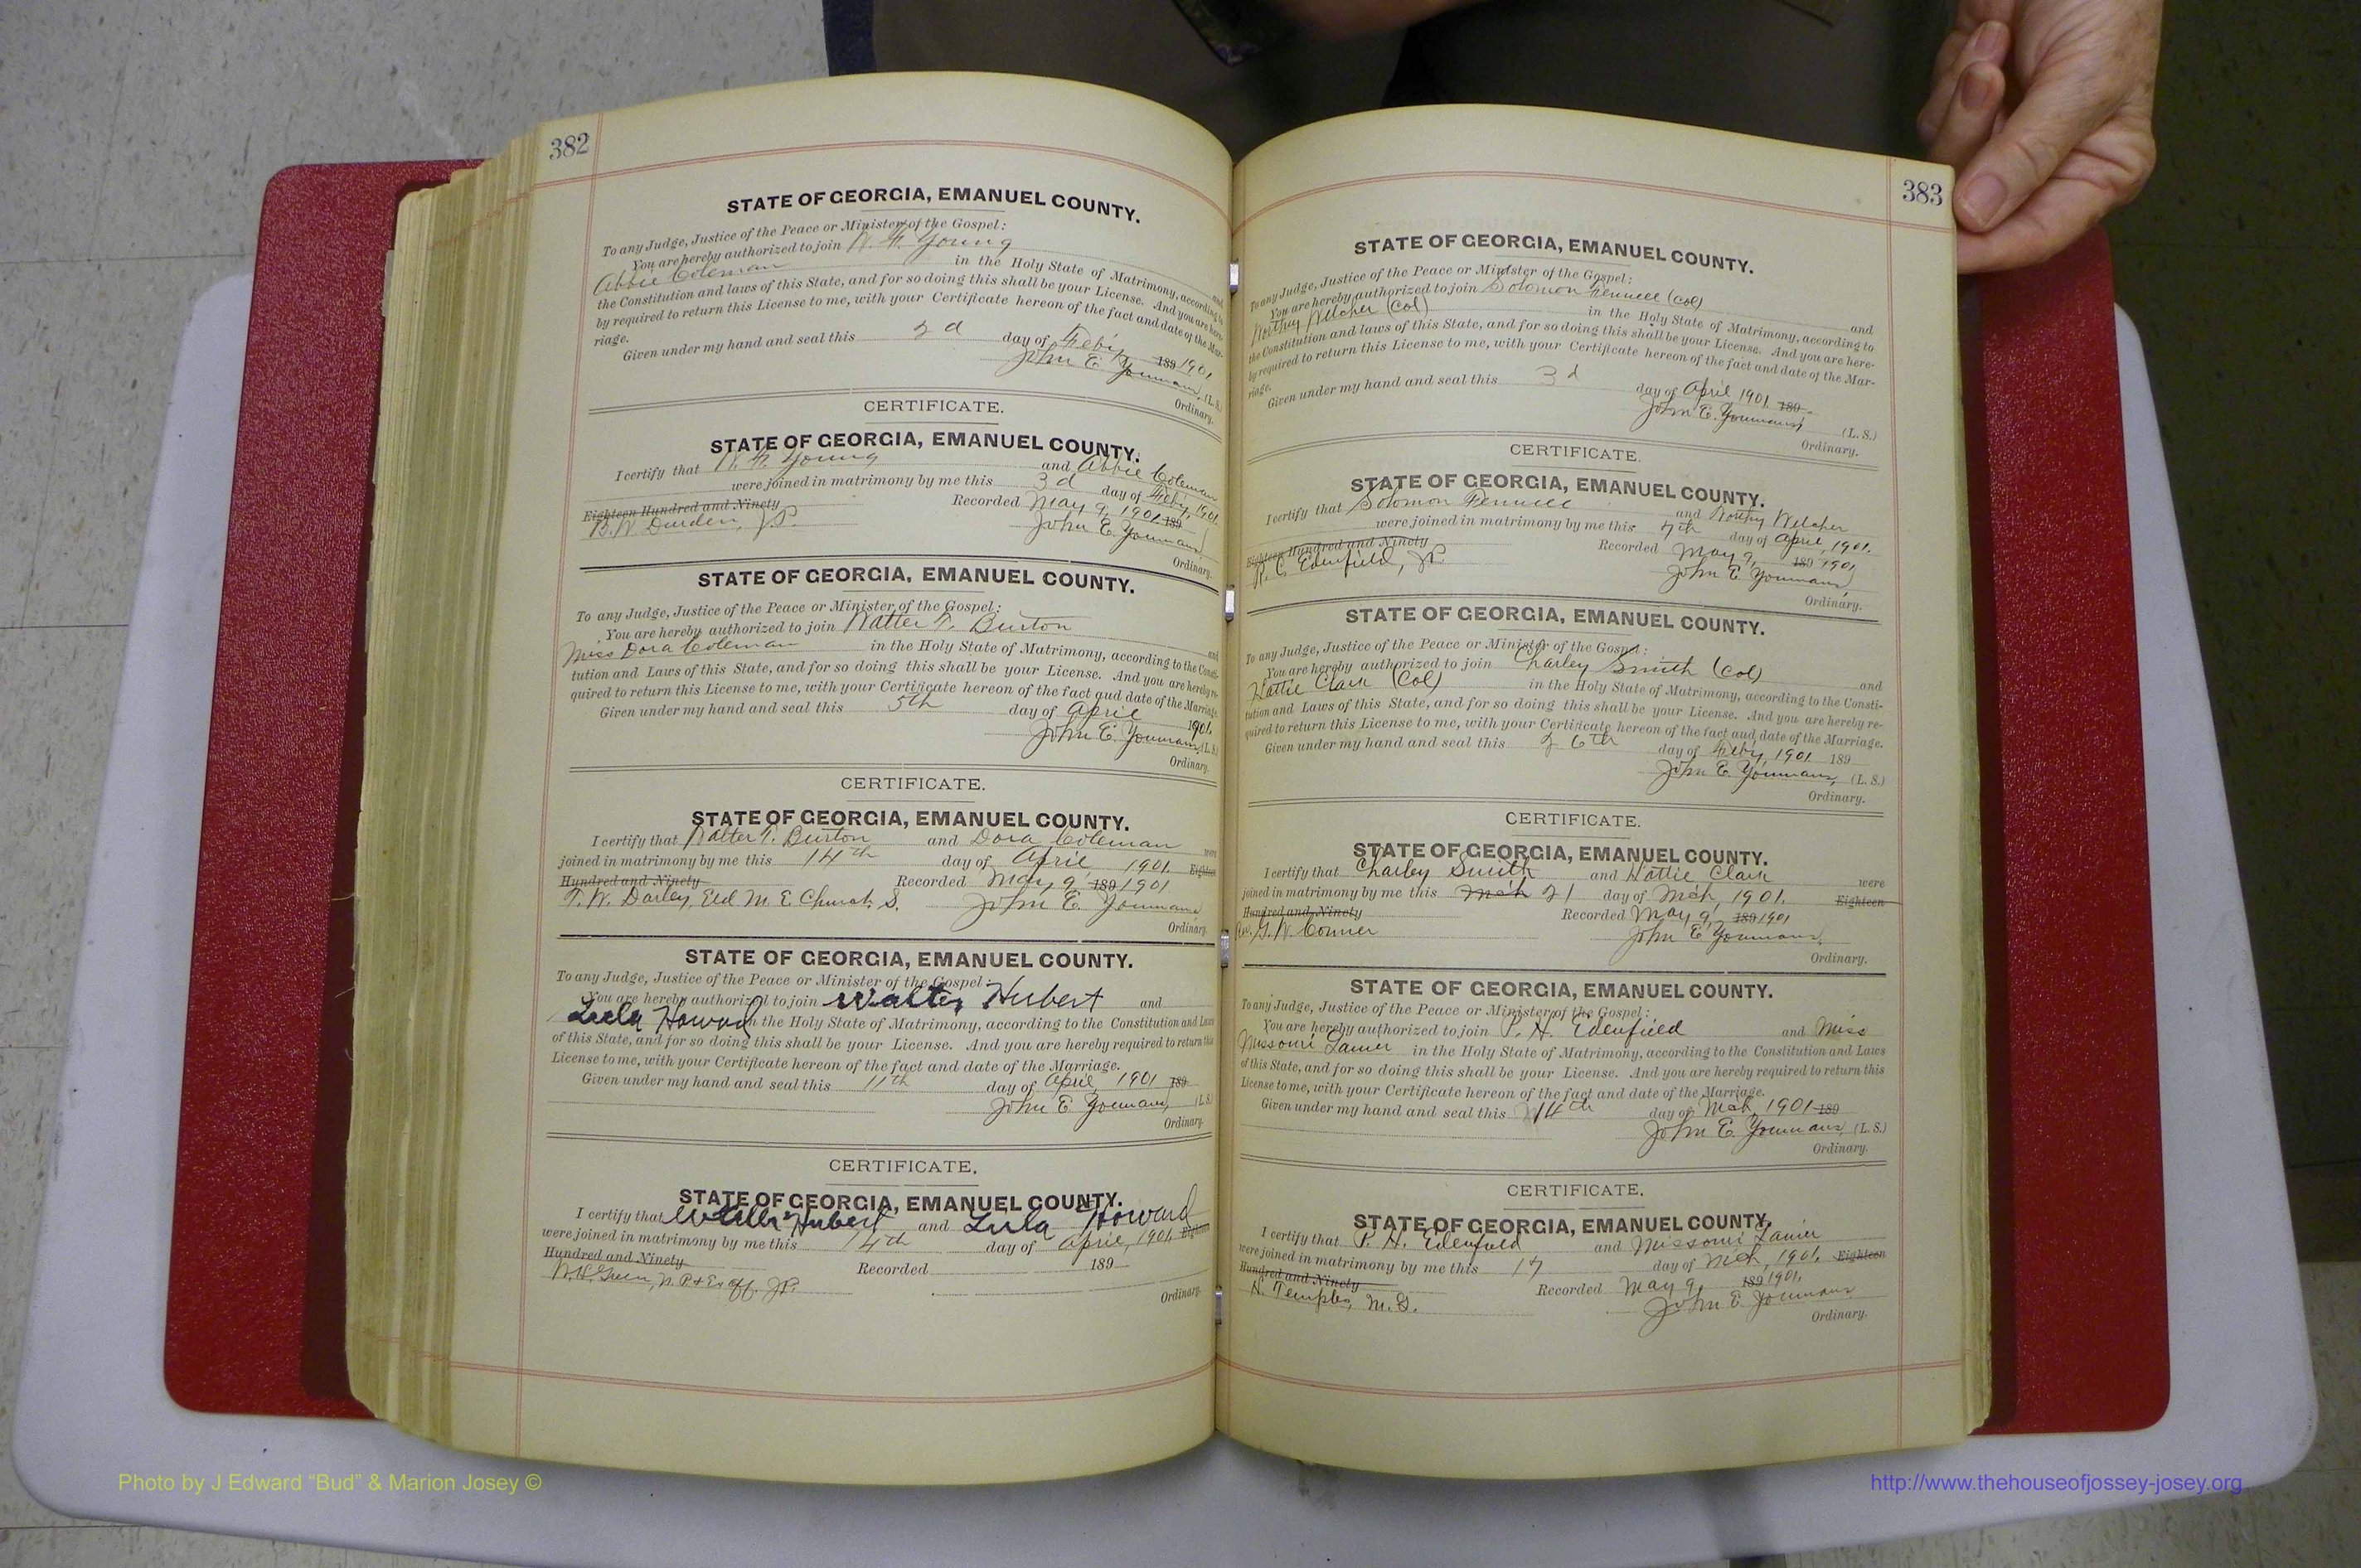 382
STATE OF GEORGIA, EMANUEL COUNTY.
To any Judge, Justice of the Peace or Minister of the Gospel:
You are hereby authorized to join N. F. Young and
Abbie Coleman in the Holy State of Matrimony, according to
the Constitution and laws of this State, and for so doing this shall be your License. And you are here-
by required to return this License to me, with your Certificate hereon of the fact and date of the Mar-
riage.
Given under my hand and seal this 2d day of Feby, 189 1901
John E. Youmans, (L. S.)
Ordinary.
CERTIFICATE.
STATE OF GEORGIA, EMANUEL COUNTY.
I certify that N. F. Young and Abbie Coleman
were joined in matrimony by me this 3d day of Feby, 1901
Eighteen Hundred and Ninety Recorded May 9, 1901 189
B. W. Durden, J.P. John E. Youmans
Ordinary.
STATE OF GEORGIA, EMANUEL COUNTY.
To any Judge, Justice of the Peace or Minister of the Gospel:
You are hereby authorized to join Walter T. Burton and
Miss Dora Coleman in the Holy State of Matrimony, according to the Consti-
tution and Laws of this State, and for so doing this shall be your License. And you are hereby re-
quired to return this License to me, with your Certificate hereon of the fact aud date of the Marriage.
Given under my hand and seal this 5th day of April 1901.
John E. Youmans (L. S.)
Ordinary.
CERTIFICATE.
STATE OF GEORGIA, EMANUEL COUNTY.
I certify that Walter T. Burton and Dora Coleman were
joined in matrimony by me this 14th day of April 1901. Eighteen
Hundred and Ninety Recorded May 9, 189 1901
T. W. Darley, Eld M. E. Church S. John E. Youmans
Ordinary.
STATE OF GEORGIA, EMANUEL COUNTY.
To any Judge, Justice of the Peace or Minister of the Gospel:
You are hereby authorized to join Walter Hubert and
Lula Howard in the Holy State of Matrimony, according to the Constitution and Laws
of this State, and for so doing this shall be your License. And you are hereby required to return this
License to me, with your Certificate hereon of the fact and date of the Marriage.
Given under my hand and seal this 11th day of April, 1901 189
John E Youmans, (L. S.)
Ordinary.
CERTIFICATE.
STATE OF GEORGIA, EMANUEL COUNTY.
I certify that Hubert and Lula Howard
were joined in matrimony by me this 14th day of April, 1901 Eighteen
Hundred and Ninety Recorded 189
W. H. Green, N. P. & Ex off. J.P.
Ordinary.
383
STATE OF GEORGIA, EMANUEL COUNTY.
To any Judge, Justice of the Peace or Minister of the Gospel:
You are hereby authorized to join Solomon Fennell (Col) and
Welcher (Col) in the Holy State of Matrimony, according to
the Constitution and laws of this State, and for so doing this shall be your License. And you are here-
by required to return this License to me, with your Certificate hereon of the fact and date of the Mar-
riage.
Given under my hand and seal this 3d day of April 1901 189
John E. Youmans, (L. S.)
Ordinary.
CERTIFICATE.
STATE OF GEORGIA, EMANUEL COUNTY.
I certify that Solomon Fennell and Welcher
were joined in matrimony by me this 7th day of April, 1901.
Eighteen Hundred and Ninety Recorded May 9, 189 1901
R. C. Edenfield, J.P. John E Youmans
Ordinary.
STATE OF GEORGIA, EMANUEL COUNTY.
To any Judge, Justice of the Peace or Minister of the Gospel:
You are hereby authorized to join Charley Smith (Col) and
Hattie Clark (Col) in the Holy State of Matrimony, according to the Consti-
tution and Laws of this State, and for so doing this shall be your License. And you are hereby re-
quired to return this License to me, with your Certificate hereon of the fact aud date of the Marriage.
Given under my hand and seal this 26th day of Feby, 1901 189
John E Youmans, (L. S.)
Ordinary.
CERTIFICATE.
STATE OF GEORGIA, EMANUEL COUNTY.
I certify that Charley Smith and Hattie Clark were
joined in matrimony by me this Mch 21 day of Mch, 1901. Eighteen
Hundred and Ninety Recorded May 9, 189 1901
Rev. G. W. Conner John E Youmans,
Ordinary.
STATE OF GEORGIA, EMANUEL COUNTY.
To any Judge, Justice of the Peace or Minister of the Gospel:
You are hereby authorized to join P. H. Edenfield and Miss
Missouri Lanier in the Holy State of Matrimony, according to the Constitution and Laws
of this State, and for so doing this shall be your License. And you are hereby required to return this
License to me, with your Certificate hereon of the fact and date of the Marriage.
Given under my hand and seal this 14th day of Mch, 1901 189
John E. Youmans, (L. S.)
Ordinary.
CERTIFICATE.
STATE OF GEORGIA, EMANUEL COUNTY.
I certify that P. H. Edenfield and Missouri Lanier
were joined in matrimony by me this 17 day of Mch, 1901. Eighteen
Hundred and Ninety Recorded May 9, 189 1901.
H. Temples, M. G. John E. Youmans
Ordinary.
Photo by J Edward “Bud” & Marion Josey ©
http://www.thehouseofjossey-josey.org